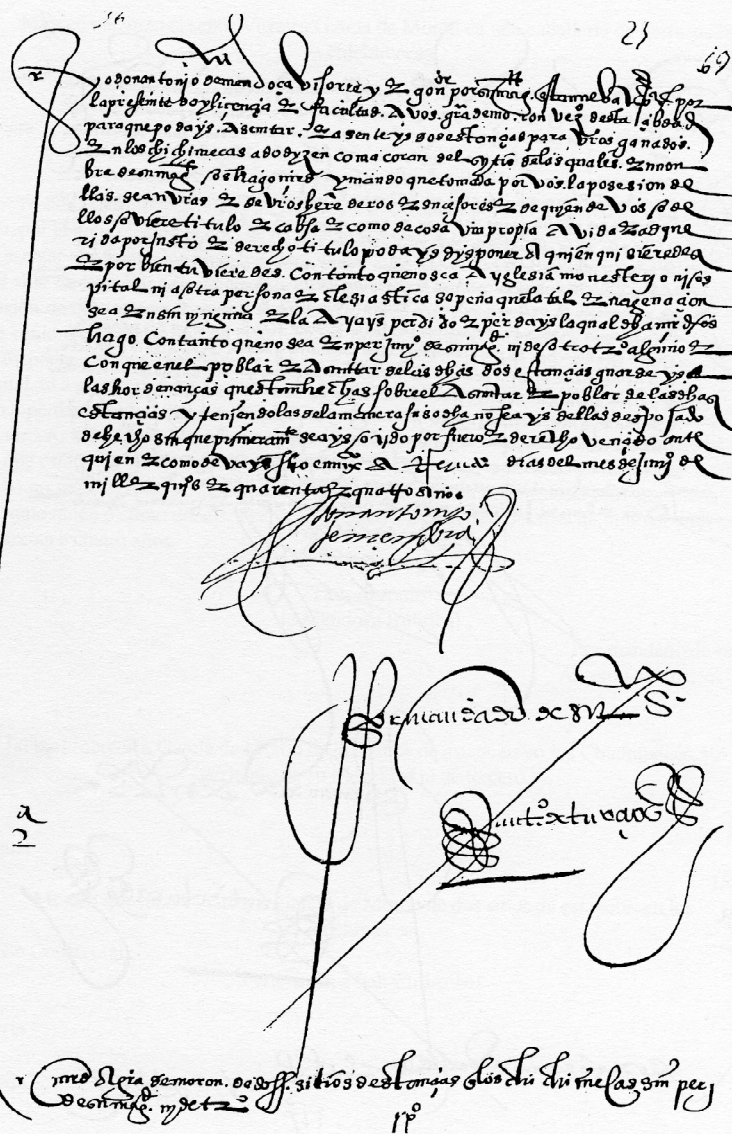 21
69
yo don antonio de mendoça visorrey & gor por su mag. en esta nueva españa por
la presente doy liçençia & facultad. A vos. graa de moron vezo desta çibdad
para que podays. Asentar. & asenteys dos estançias para vros ganados.
En los chichimecas ado dyzen comacoran del sytio de las quales. En non
bre de su mag. os hago mrd y mando que tomada por vos. la posesion de
llas. sean vras & de vros herederos & suçesores & de quien de vos o de
llos oviere titulo & cabsa & como de cosa vra propia Avida & adque
rida por justo & derecho titulo podays dysponer A quien quisieredes
& por bien tuvieredes. Con tanto que no sea A yglesia ni monesterio ni os
pital ni a otra persona Eclesiastica so pena que la tal Enagenaçion
sea En sy ninguna & la Ayays perdido & perdays la qual dha mrd os
hago. Con tanto que no sea En perjuyo de su mag. ni de otro terco alguno &
Con que en el poblar & Asentar de las dhas dos estançias guardeys
las hordenanças questan hechas sobre el Asentar & poblar de las dhas
estançias y teniendolas de la manera suso dha no seays dellas desposeydo
de hecho sin que primeramte seays oydo por fuero & derecho vençido ante
quien & como devays fho en mexco A dias del mes de de
mill & quis & quarenta & quatro años
don antonio
de mendoça
Por mandado de su S.
anto de turçios
mrd A gra de moron. de dos sitios de estançias En los chichimecas sin perjuo
de su mag. ni de to